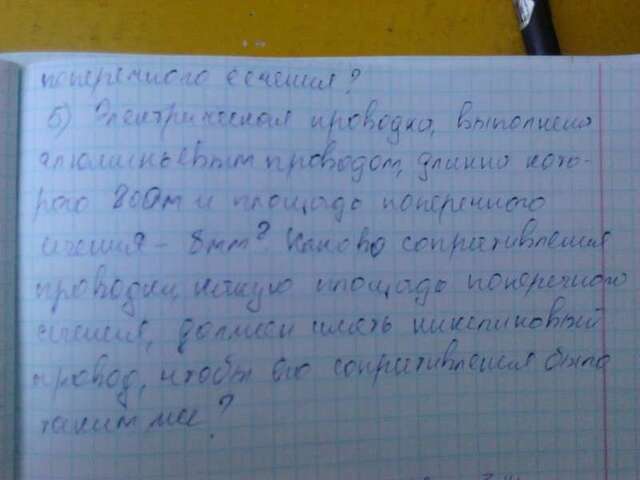 поперечного сечения?
5) Электрическая проводка, выполнена
алюминьевым проводом, длинна кото-
рого 200м и площадь поперечного
сечения - 8мм². Каково сопротивления
проводки, какую площадь поперечного
сечения, должен иметь никелиновый
провод, чтобы его сопротивления было
таким же?